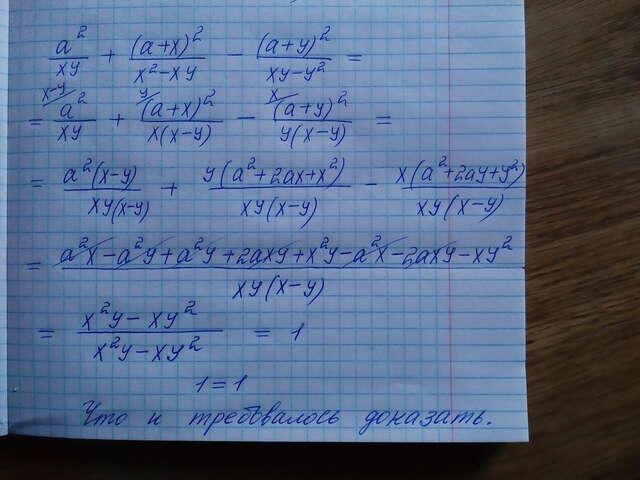 a²/xy + (a+x)²/x²-xy - (a+y)²/xy-y² =
= x-y/ a²/xy + y/ (a+x)²/x(x-y) - x/ (a+y)²/y(x-y) =
= a²(x-y)/xy(x-y) + y(a²+2ax+x²)/xy(x-y) - x(a²+2ay+y²)/xy(x-y)
= a²x-a²y+a²y+2axy+x²y-a²x-2axy-xy²/xy(x-y)
= x²y-xy²/x²y-xy² = 1
1=1
Что и требовалось доказать.